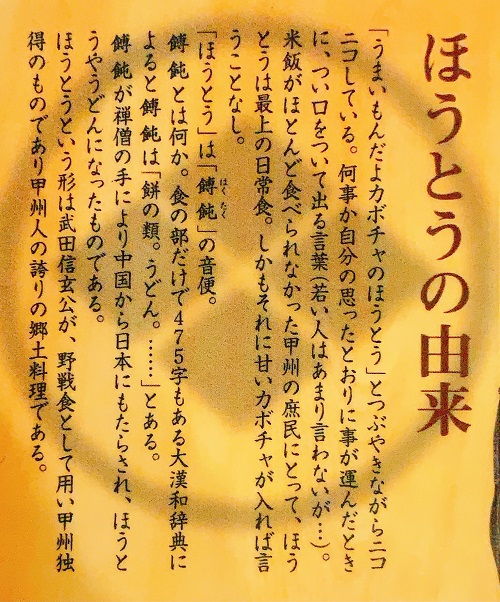 ほうとうの由来
「うまいもんだよカボチャのほうとう」とつぶやきながらニコ
ニコしている。何事か自分の思ったとおりに事が運んだとき
に、つい口をついて出る言葉(若い人はあまり言わないが…)。
米飯がほとんど食べられなかった甲州の庶民にとって、ほう
とうは最上の日常食。しかもそれに甘いカボチャが入れば言
うことなし。
「ほうとう」は「餺飩」の音便。
はくたく
餺飩とは何か。食の部だけで475字もある大漢和辞典に
よると餺飩は「餅の類。うどん。……」とある。
餺飩が禅僧の手により中国から日本にもたらされ、ほうと
うやうどんになったものである。
ほうとうという形は武田信玄公が、野戦食として用い甲州独
得のものであり甲州人の誇りの郷土料理である。